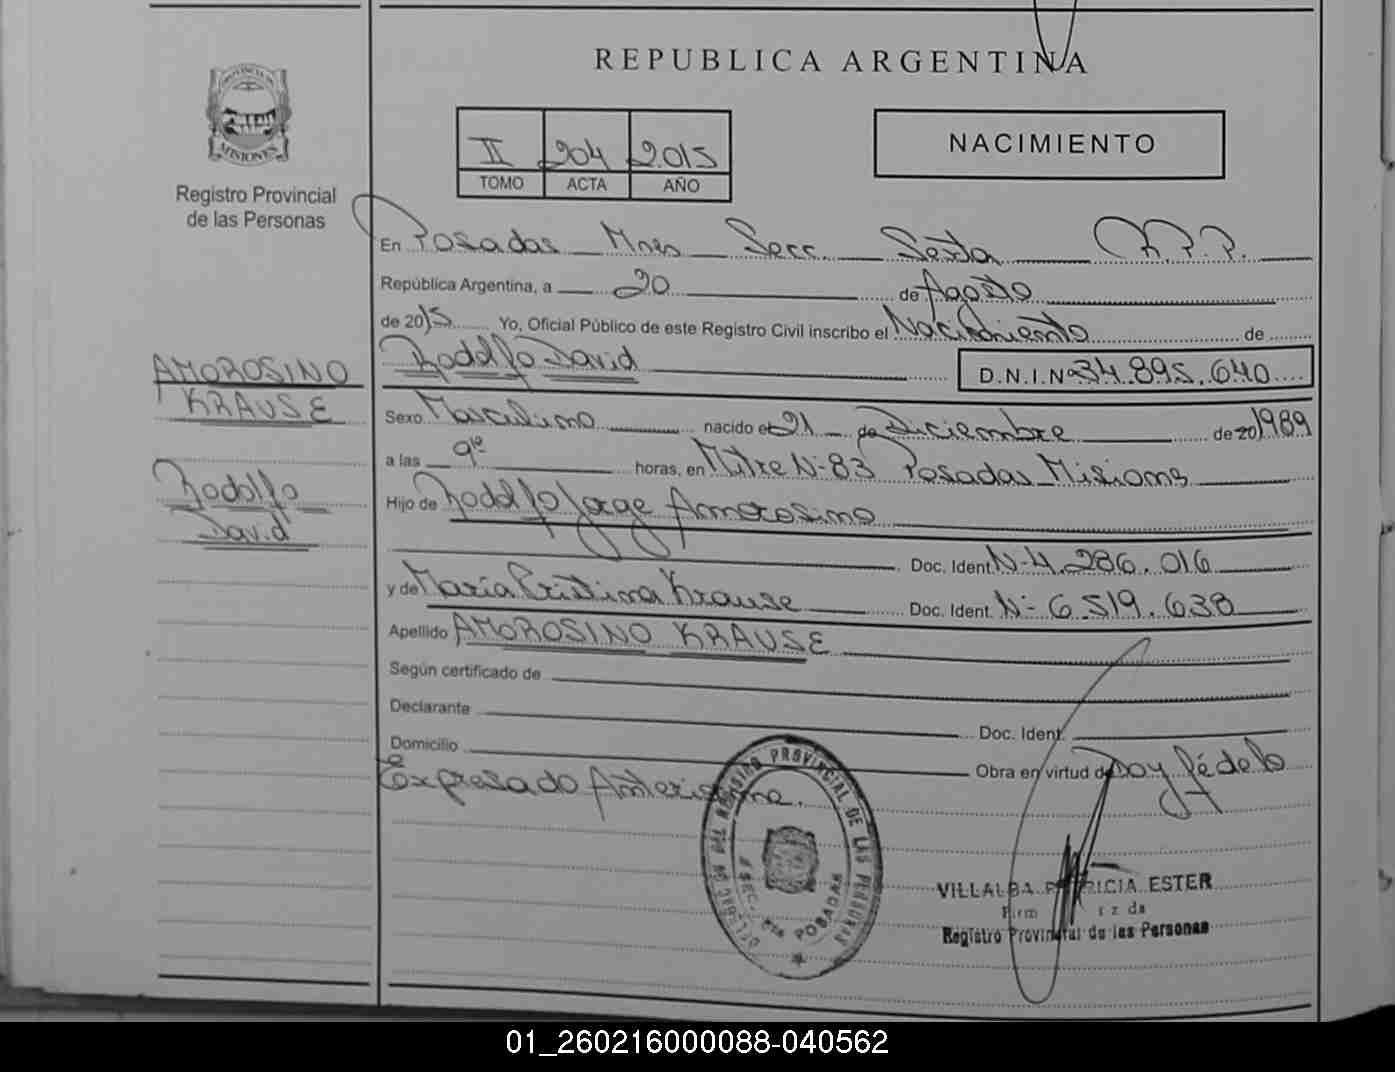 REPUBLICA ARGENTINA
PROVINCIA DE
MISIONES
Registro Provincial
de las Personas
II 204 2015
TOMO ACTA AÑO
NACIMIENTO
En Posadas Mnes Secc. Sexta R.P.P.
República Argentina, a 20 de Agosto
de 2015 Yo, Oficial Público de este Registro Civil inscribo el Nacimiento de
Rodolfo David D.N.I.Nº 34.895.640
AMOROSINO
KRAUSE
Rodolfo
David
Sexo Masculino nacido el 21 de Diciembre de 20 1989
a las 9 horas, en Mitre N-83 Posadas Misiones
Hijo de Rodolfo Jorge Amorosino
Doc. Ident. N-4.286.016
y de María Cristina Krause Doc. Ident. N- 6.519.638
Apellido AMOROSINO KRAUSE
Según certificado de
Declarante Doc. Ident.
Domicilio Obra en virtud de
Expresado Doy fé de lo
REGISTRO PROVINCIAL DE LAS PERSONAS
POSADAS
VILLALBA PATRICIA ESTER
Registro Provincial de las Personas
01_260216000088-040562